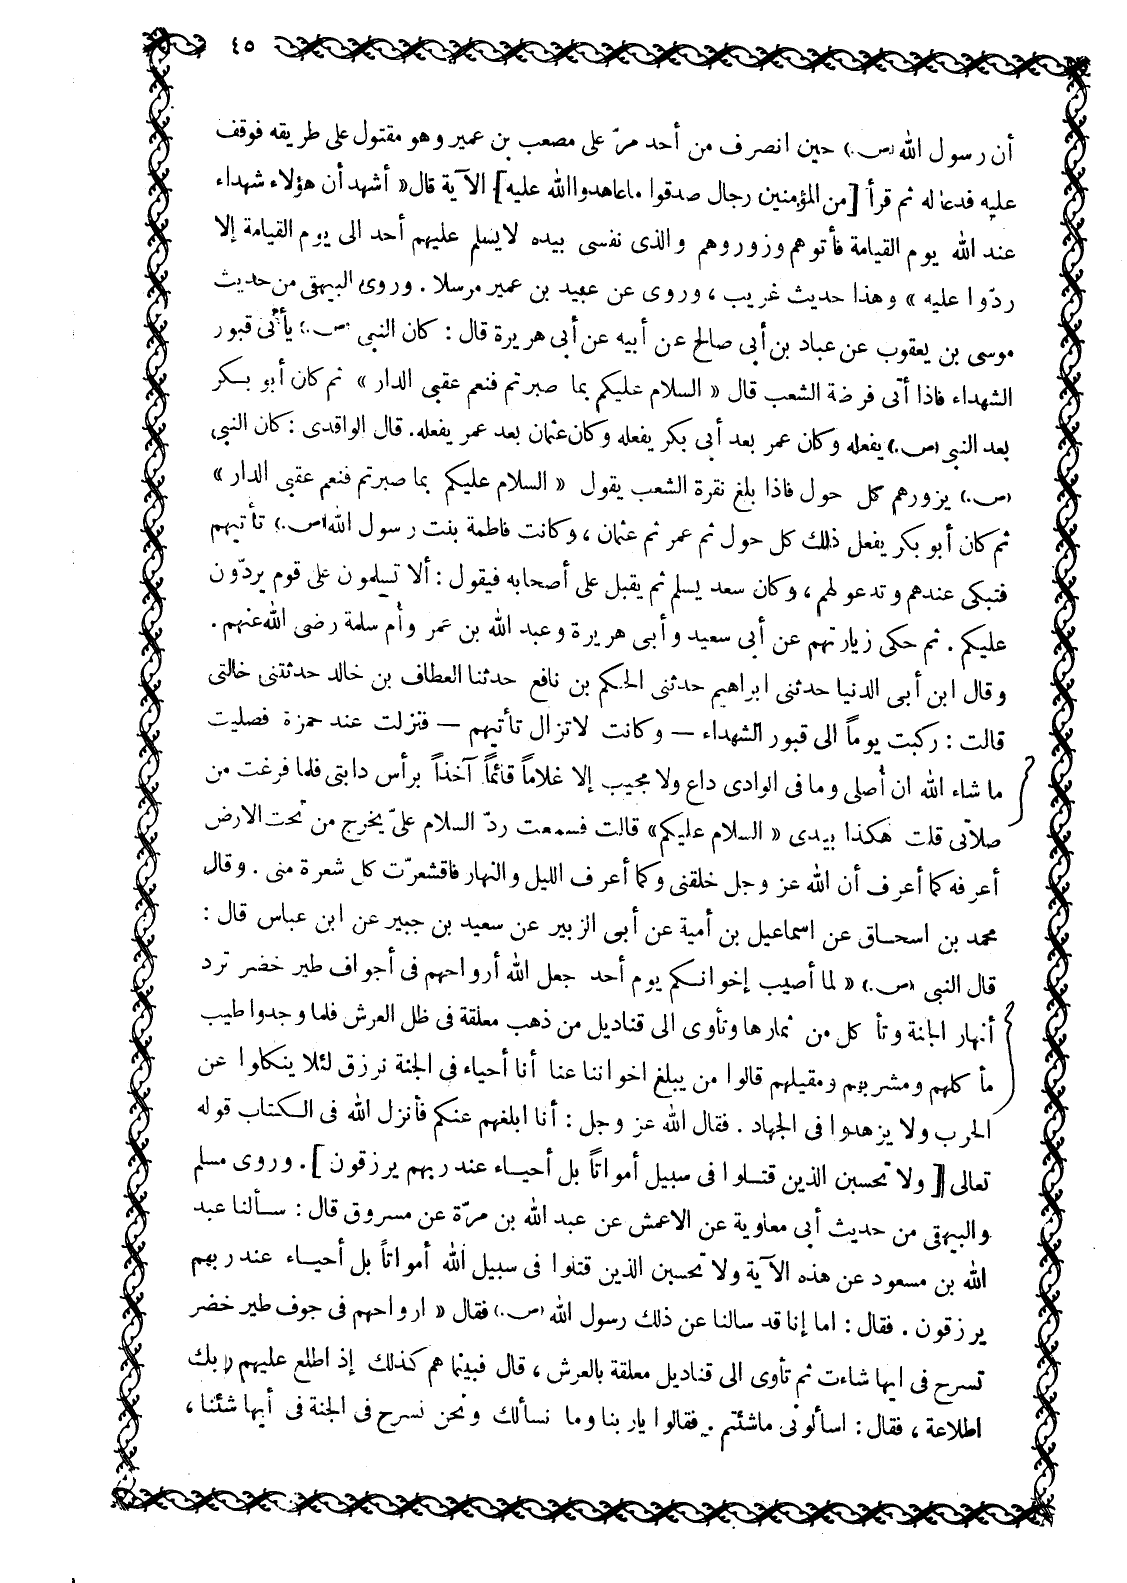 ٤٥
أن رسول الله (ص.) حين انصرف من أحد مرّ على مصعب بن عمير وهو مقتول على طريقه فوقف
عليه فدعا له ثم قرأ [من المؤمنين رجال صدقوا ماعاهدوا الله عليه] الآية قال « أشهد أن هؤلاء شهداء
عند الله يوم القيامة فأتوهم وزوروهم والذى نفسى بيده لا يسلم عليهم أحد الى يوم القيامة إلا
ردّوا عليه » وهذا حديث غريب ، وروى عن عبيد بن عمير مرسلا . وروى البيهقى من حديث
موسى بن يعقوب عن عباد بن أبى صالح عن أبيه عن أبى هريرة قال : كان النبى (ص.) يأتى قبور
الشهداء فاذا أتى فرضة الشعب قال « السلام عليكم بما صبرتم فنعم عقبى الدار » ثم كان أبو بكر
بعد النبى (ص.) يفعله وكان عمر بعد أبى بكر يفعله وكان عثمان بعد عمر يفعله. قال الواقدى : كان النبى
(ص.) يزورهم كل حول فاذا بلغ نقرة الشعب يقول « السلام عليكم بما صبرتم فنعم عقبى الدار »
ثم كان أبو بكر يفعل ذلك كل حول ثم عمر ثم عثمان ، وكانت فاطمة بنت رسول الله (ص.) تأتيهم
فتبكى عندهم وتدعو لهم ، وكان سعد يسلم ثم يقبل على أصحابه فيقول : ألا تسلمون على قوم يردّون
عليكم . ثم حكى زيارتهم عن أبى سعيد وأبى هريرة وعبد الله بن عمر وأم سلمة رضى الله عنهم .
وقال ابن أبى الدنيا حدثنى ابراهيم حدثنى الحكم بن نافع حدثنا العطاف بن خالد حدثتنى خالتى
قالت : ركبت يوماً الى قبور الشهداء — وكانت لاتزال تأتيهم — فنزلت عند حمزة فصليت
ما شاء الله ان أصلى وما فى الوادى داع ولا مجيب إلا غلاماً قائماً آخذاً برأس دابتى فلما فرغت من
صلاتى قلت هكذا بيدى « السلام عليكم» قالت فسمعت ردّ السلام علىّ يخرج من تحت الارض
أعرفه كما أعرف أن الله عز وجل خلقنى وكما أعرف الليل والنهار فاقشعرّت كل شعرة منى . وقال
محمد بن اسحاق عن اسماعيل بن أمية عن أبى الزبير عن سعيد بن جبير عن ابن عباس قال :
قال النبى (ص.) « لما أصيب إخوانكم يوم أحد جعل الله أرواحهم فى أجواف طير خضر ترد
أنهار الجنة وتأكل من ثمارها وتأوى الى قناديل من ذهب معلقة فى ظل العرش فلما وجدوا طيب
مأكلهم ومشربهم ومقيلهم قالوا من يبلغ اخواننا عنا أنا أحياء فى الجنة نرزق لئلا ينكلوا عن
الحرب ولا يزهدوا فى الجهاد . فقال الله عز وجل : أنا ابلغهم عنكم فأنزل الله فى الكتاب قوله
تعالى [ ولا تحسبن الذين قتلوا فى سبيل أمواتاً بل أحياء عند ربهم يرزقون ] . وروى مسلم
والبيهقى من حديث أبى معاوية عن الاعمش عن عبد الله بن مرّة عن مسروق قال : سألنا عبد
الله بن مسعود عن هذه الآية ولا تحسبن الذين قتلوا فى سبيل الله أمواتاً بل أحياء عند ربهم
يرزقون . فقال : اما إنا قد سالنا عن ذلك رسول الله (ص.) فقال « ارواحهم فى جوف طير خضر
تسرح فى ايها شاءت ثم تأوى الى قناديل معلقة بالعرش ، قال فبينما هم كذلك إذ اطلع عليهم ربك
اطلاعة ، فقال : اسألونى ماشئتم . فقالوا ياربنا وما نسألك ونحن نسرح فى الجنة فى أيها شئنا ،